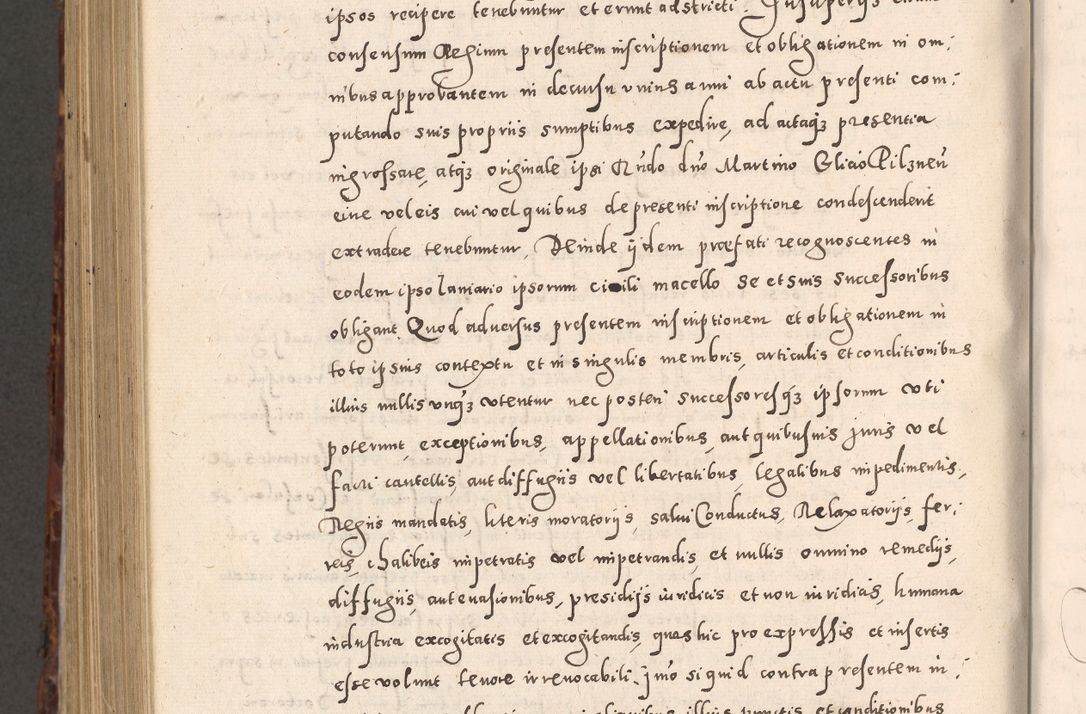 ipsos recipere tenebuntur et erunt adstricti. Insuper ijs
consensum Regium presentem inscriptionem et obligationem in om:
nibus approbantem in decursu unius anni ab actu presenti com:
putando suis propriis sumptibus expedire, ad actaq3 presentia
ingrossare, atq3 originale ipsi Rndo dno Martino Glicio Pilznen
eiue vel eis cui vel quibus de presenti inscriptione condescenderit
extradere tenebuntur. Deinde ijdem præfati recognoscentes in
eodem ipso laniario ipsorum civili macello se et suis successoribus
obligant Quod adversus presentem inscriptionem et obligationem in
toto ipsius contextu et in singulis membris, articulis et conditionibus
illius nullis unq3 utentur nec posteri successoresq3 ipsorum uti
poterunt, exceptionibus, appellationibus, aut quibusuis juris vel
facti cautellis, aut diffugiis vel libertatibus, legalibus impedimentis,
Regiis mandatis, literis moratorijs, salvi Conductus, Relaxatorijs, fer:
reis, chalibeis impetratis vel impetrandis, et nullis omnino remedijs,
diffugiis, aut evasionibus, presidijs iuridicis et non iuridicis, humana
industria excogitatis et excogitandis, quas hic pro expressis et insertis
esse volunt tenore irrevocabili. imo si quid contra presentem in:
illius punctis et conditionibus